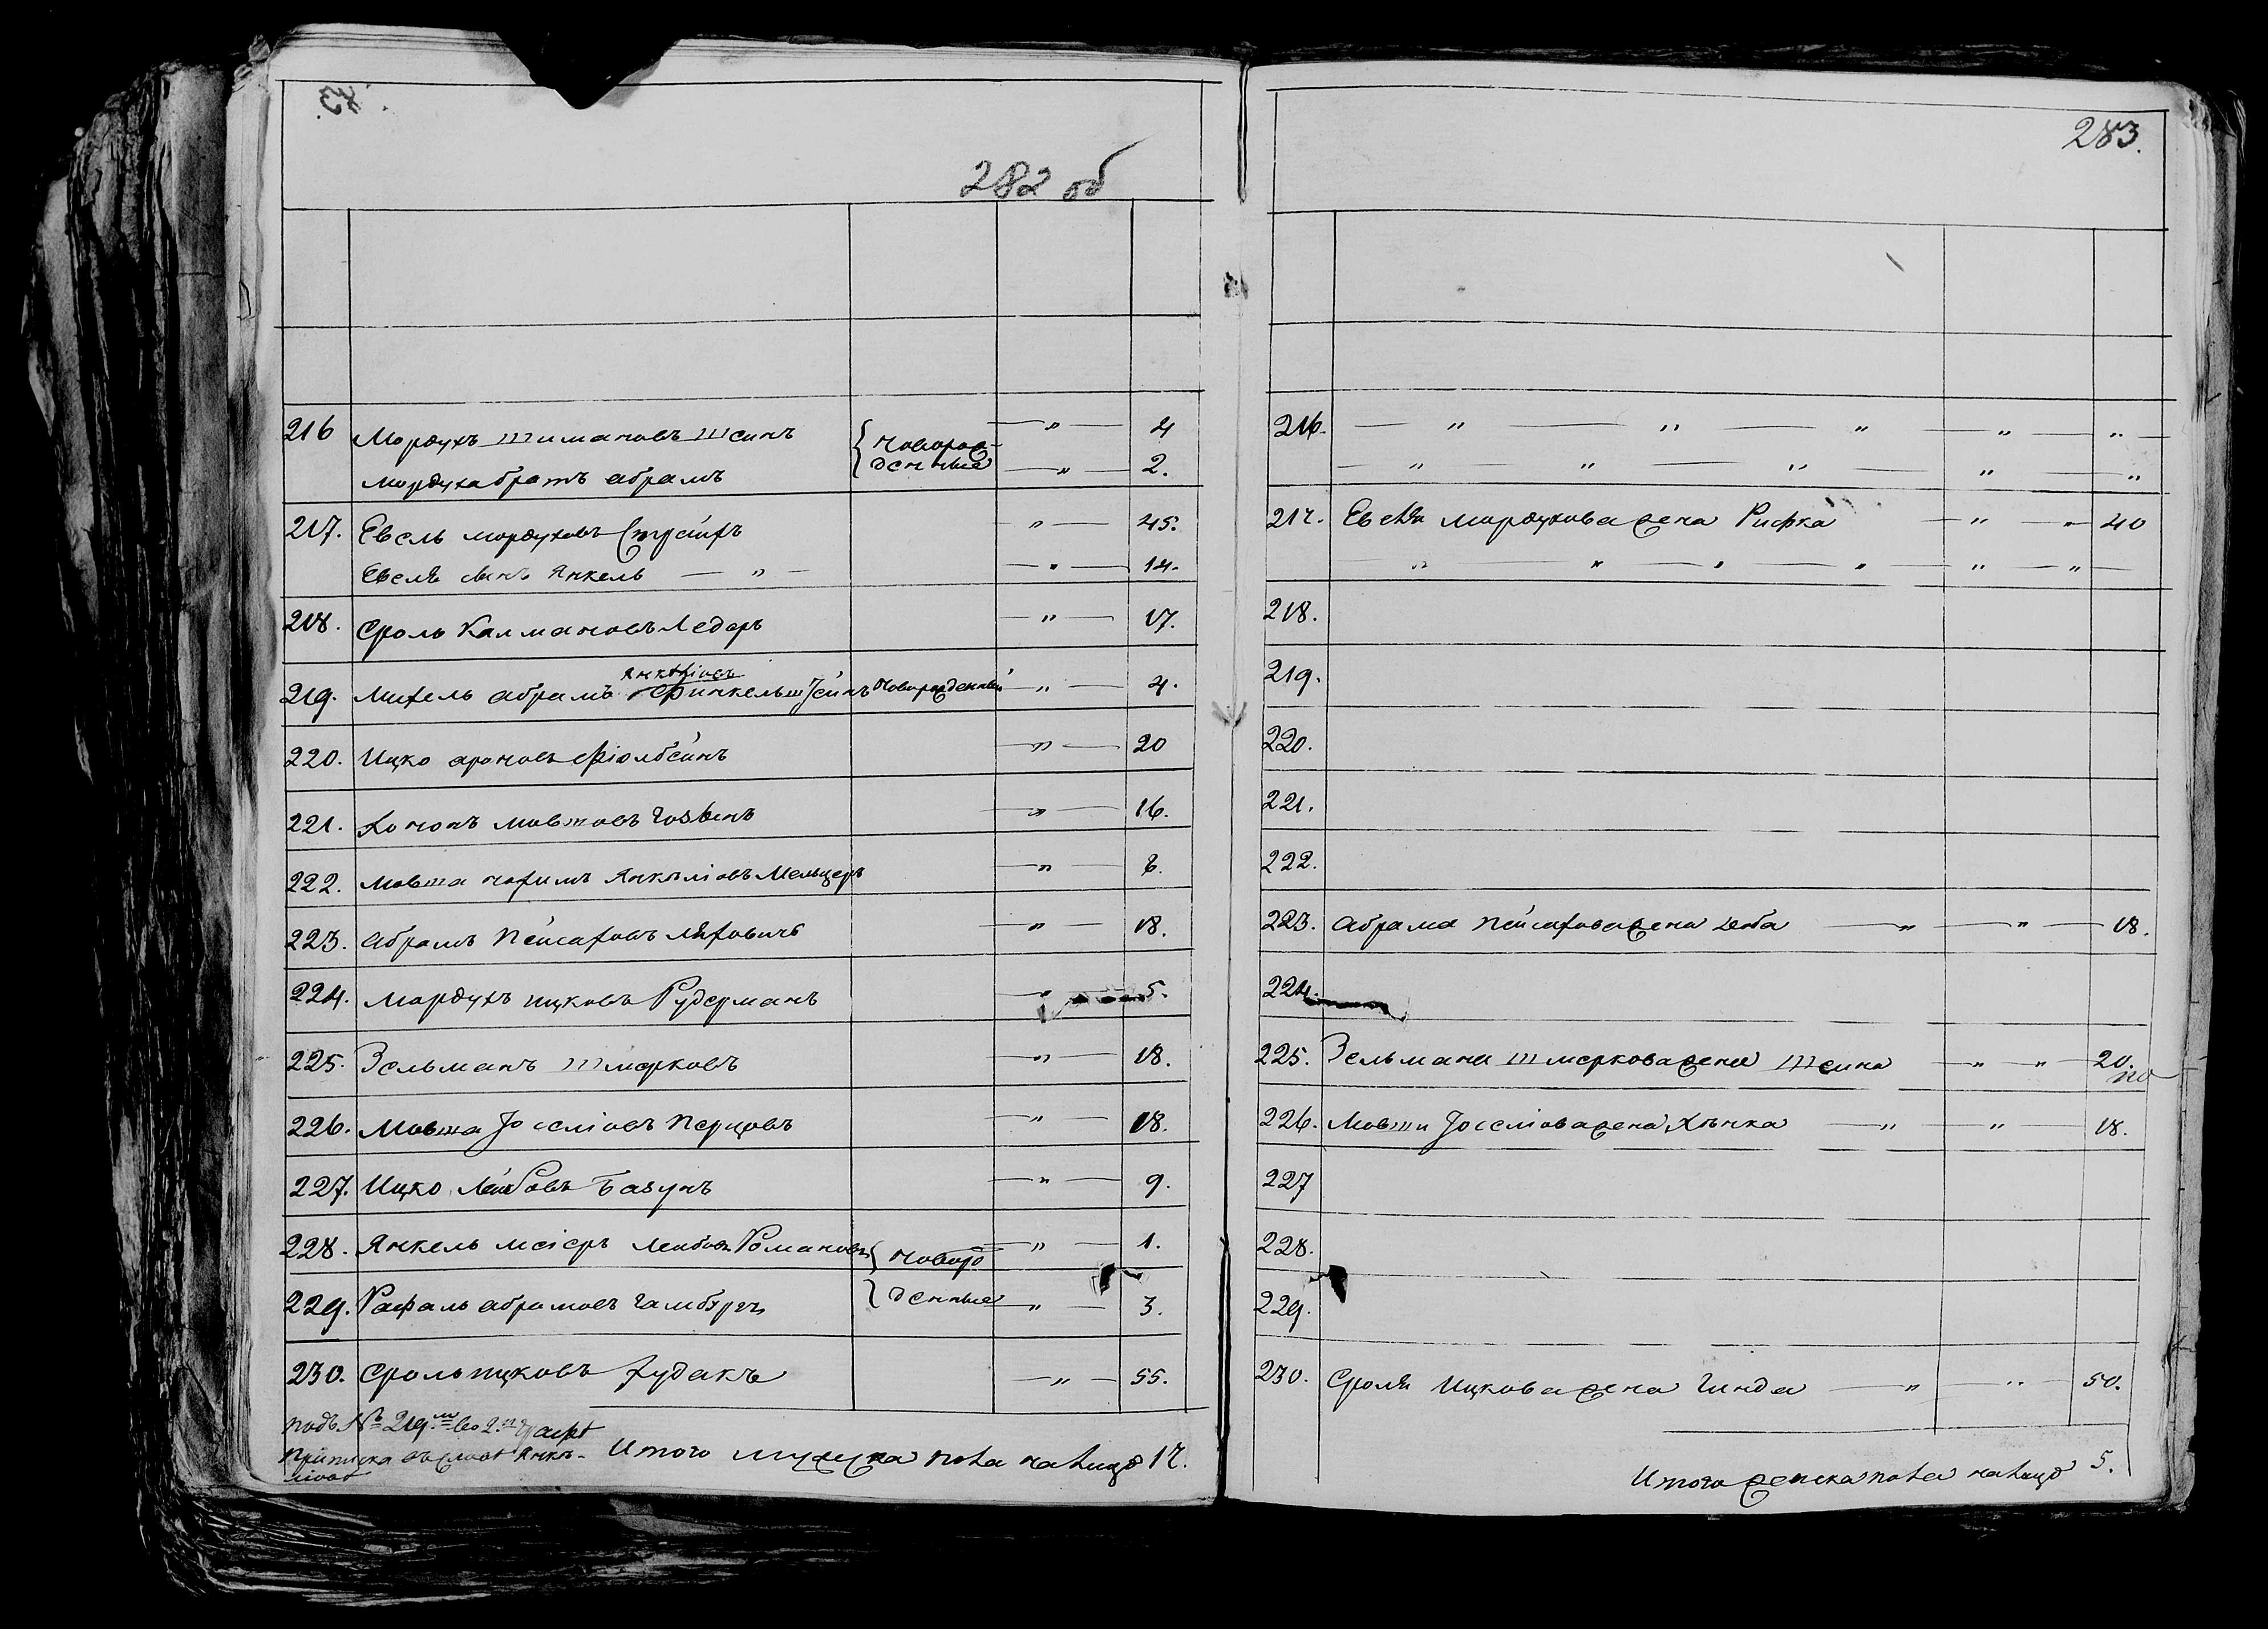 282 об
216 Мордухъ Шимановъ Шеинъ { новорож- — " — 4
Мордуха братъ абрамъ денные — " — 2.
217. Евель мордуховъ — " — 45.
Евеля сынъ Янкель — " — — " — 14.
218. Сроль Калмановъ Ледеръ — " — 17.
Янкеліовъ
219. Михель абрамъ Финкельштеинъ Новорожденный — " — 4.
220. Ицко ароновъ — " — 20
221. Хононъ мовшовъ — " — 16.
222. Мовша нохимъ Янкеліовъ Мельцеръ — " — 6.
223. Абрамъ Пейсаховъ Ляховичъ — " — 18.
224. Мордухъ ицковъ Рудерманъ — " — 5.
225. Зельманъ Шмерковъ — " — 18.
226. Мовша Іоселіовъ Перцовъ — " — 18.
227. Ицко Лейбовъ Базунъ — " — 9.
228. Янкель меіеръ Лейбовъ Романовъ { новоро — " — 1.
229. Рафаль абрамовъ Гамбургъ { денные — " — 3.
230. Сроль ицковъ Худакъ — " — 55.
подъ № 219.м во 2.й графе
приписка въ слове Янке-
ліовъ
Итого мужеска пола налицо 17.
283.
216. — " — " — " — " — " —
— " — " — " — " — "
217. Евеля мордухова жена Рифка — " — " — 40
" — " — " — " — " — " —
218.
219.
220.
221.
222.
223. Абрама Пейсахова жена Деба — " — " — 18.
224.
225. Зельмана Шмеркова жена Шеина — " — " — 20.
226. Мовши Іоселіова жена Хънка — " — " — 18.
227
228.
229.
230. Сроля Ицкова жена Гинда — " — " — 50.
Итого женска пола налицо 5.